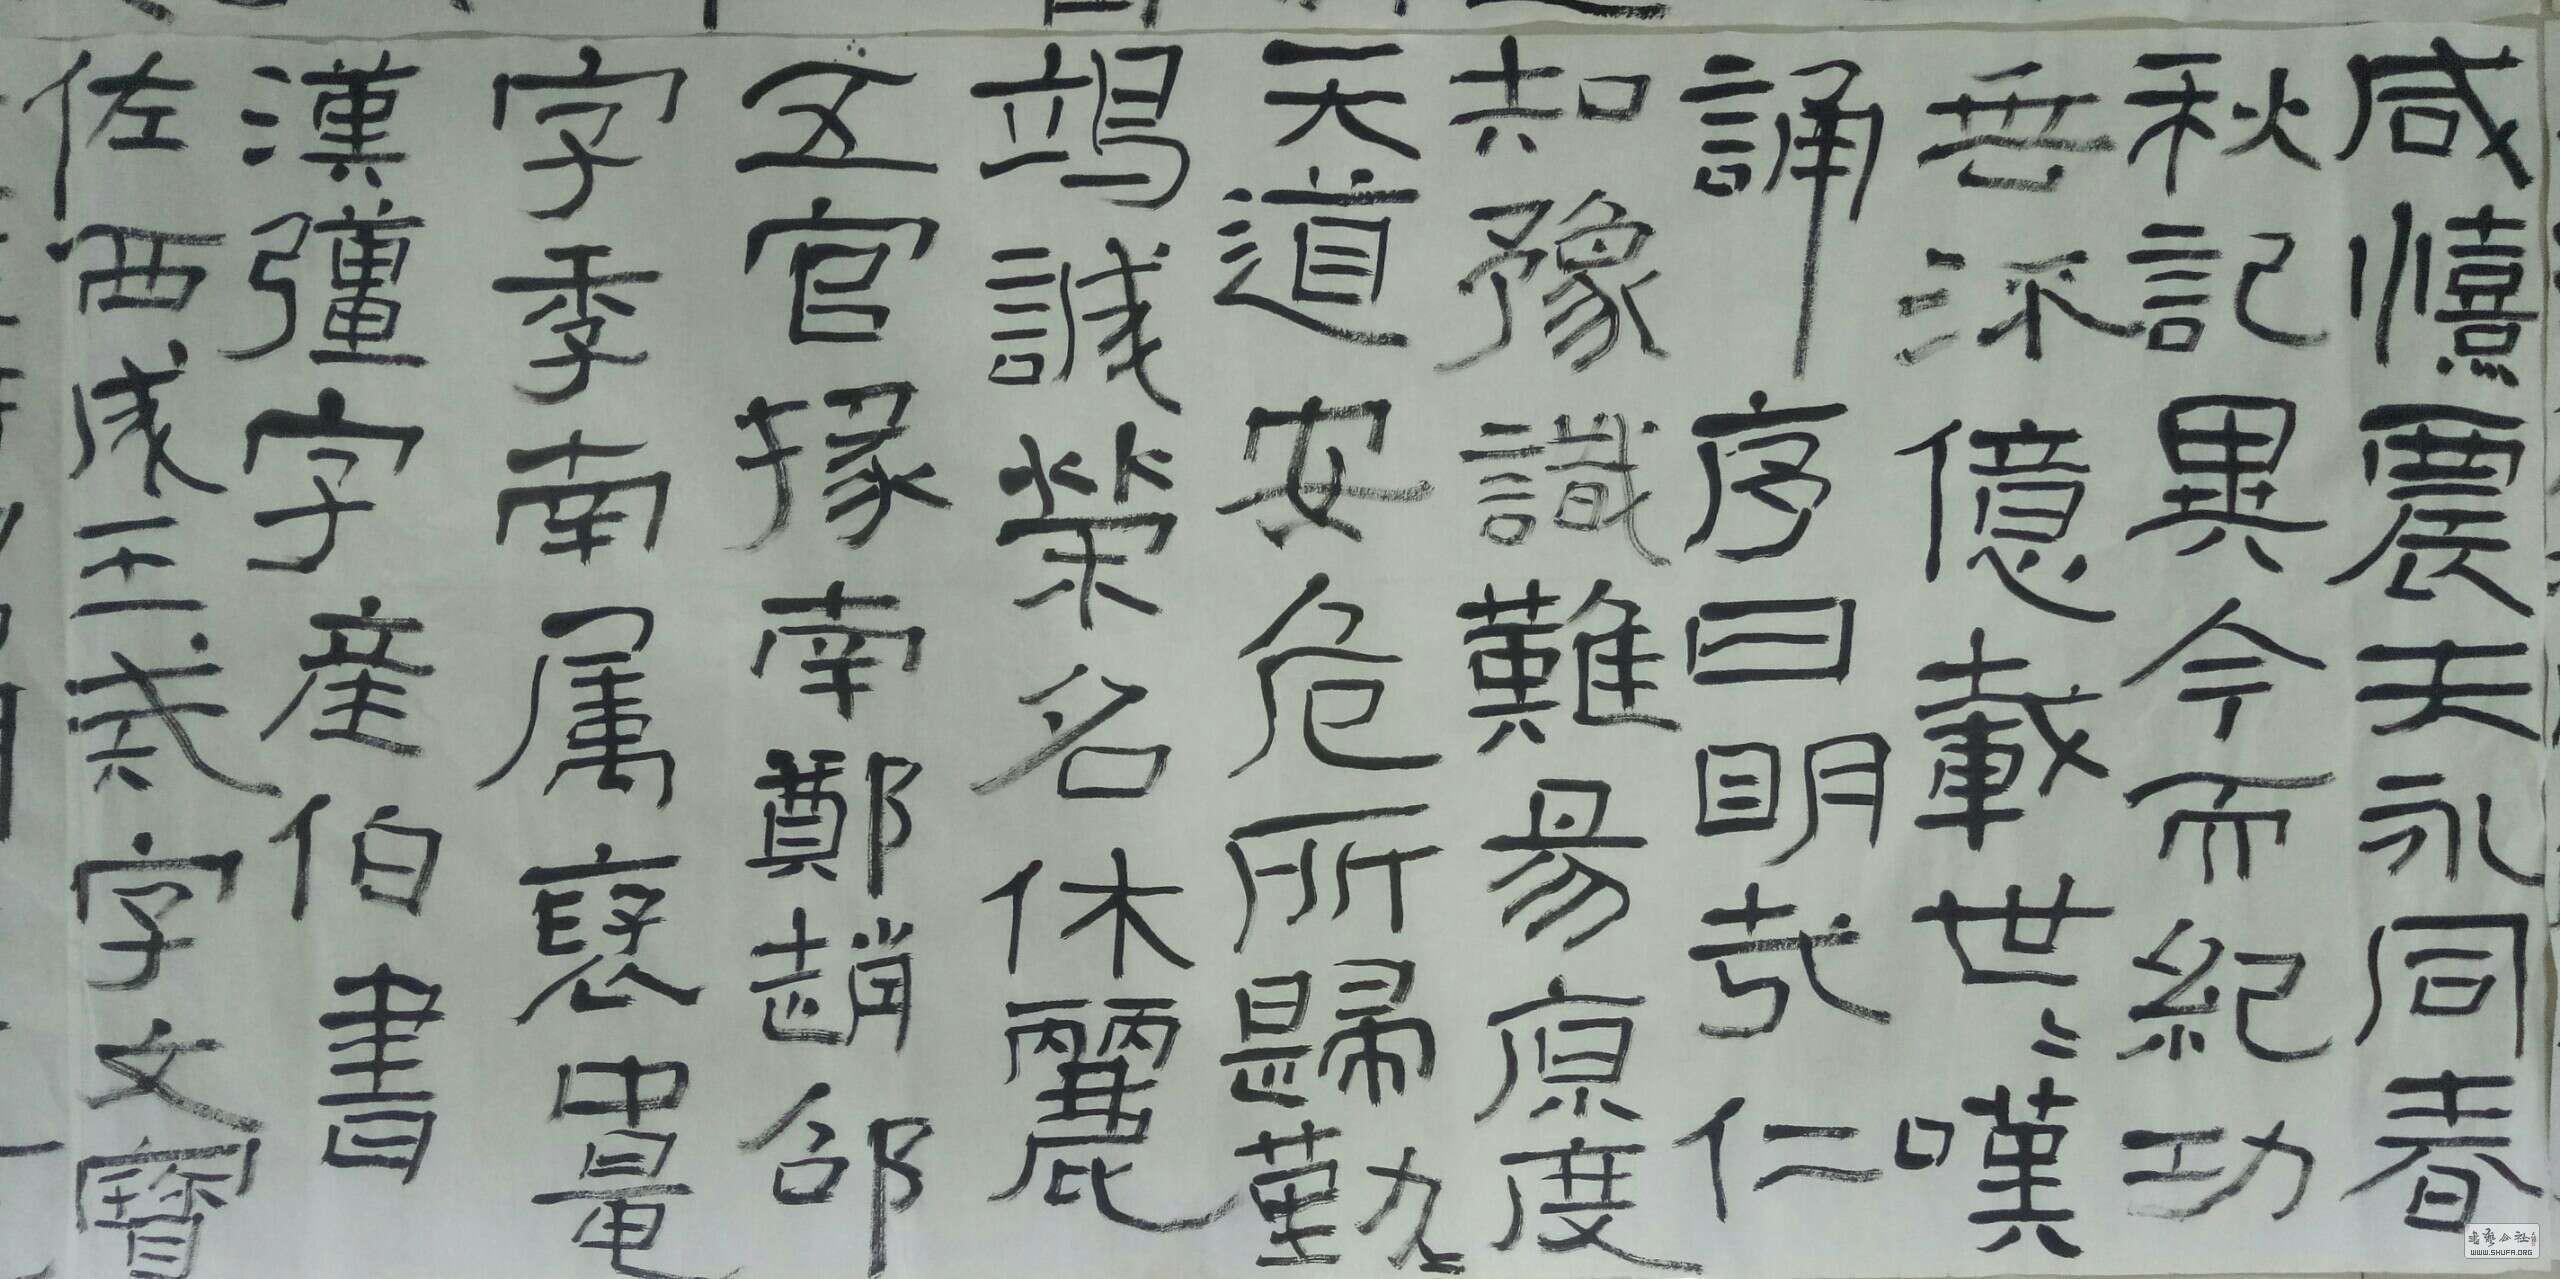 咸憘農夫永同春
秋記異今而紀功
垂流億載世〻嘆
誦序曰明哉仁
知豫識難易原度
天道安危所歸勤〻
竭誠榮名休麗
五官掾南鄭趙邵
字季南属褒中鼂
漢彊字産伯書
佐西成王戒字文寶
WWW.SHUFA.ORG